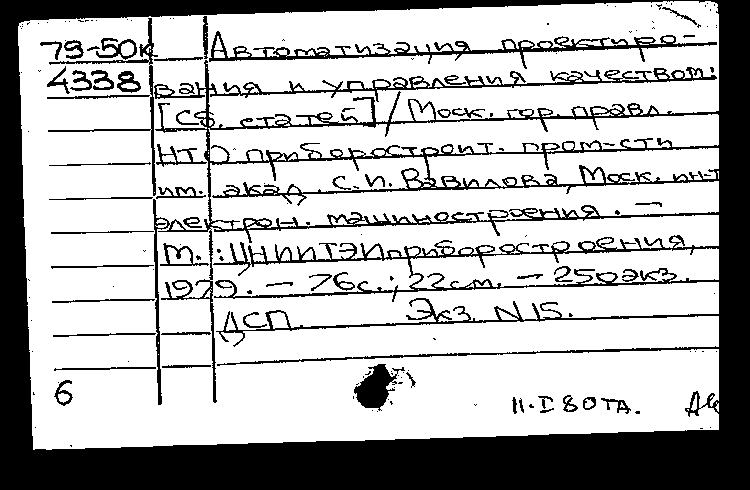 79-50к Автоматизация проектиро-
4338 вания и управления качеством:
[Сб. статей] / Моск. гор. правл.
НТО приборостроит. пром-сти
им. акад. С.И. Вавилова, Моск. ин-т
электрон. машиностроения. —
М.: ЦНИИТЭИприборостроения,
1979. — 76с.; 22см. — 250экз.
ДСП. Экз. N 15.
6
11.I 80 ТА.